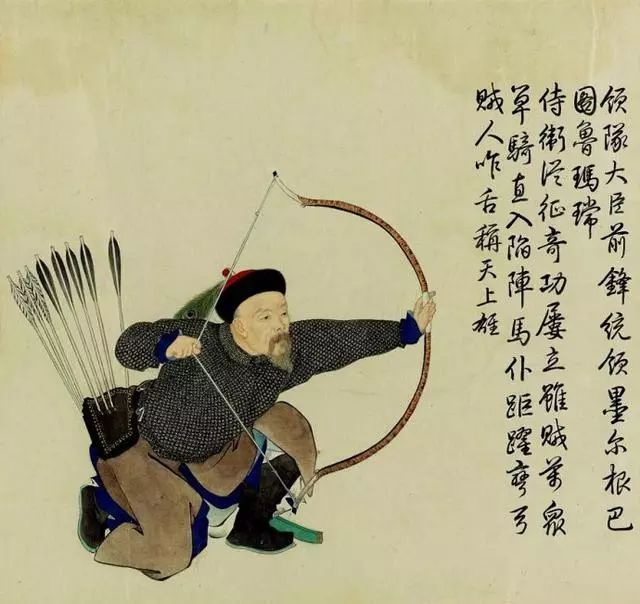 领隊大臣前鋒統领墨尔根巴
圖魯瑪瑺
侍衛從征奇功屢立雖賊萬眾
單騎直入陷陣馬仆距躍彎弓
賊人咋舌稱天上雄